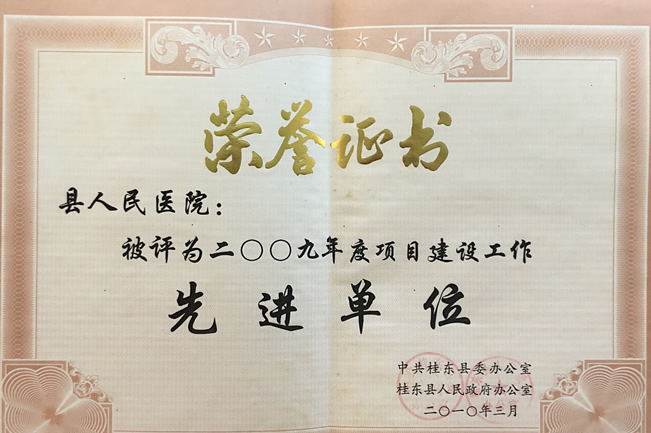 荣誉证书
县人民医院：
被评为二〇〇九年度项目建设工作
先进单位
中共桂东县委办公室
桂东县人民政府办公室
二〇一〇年三月